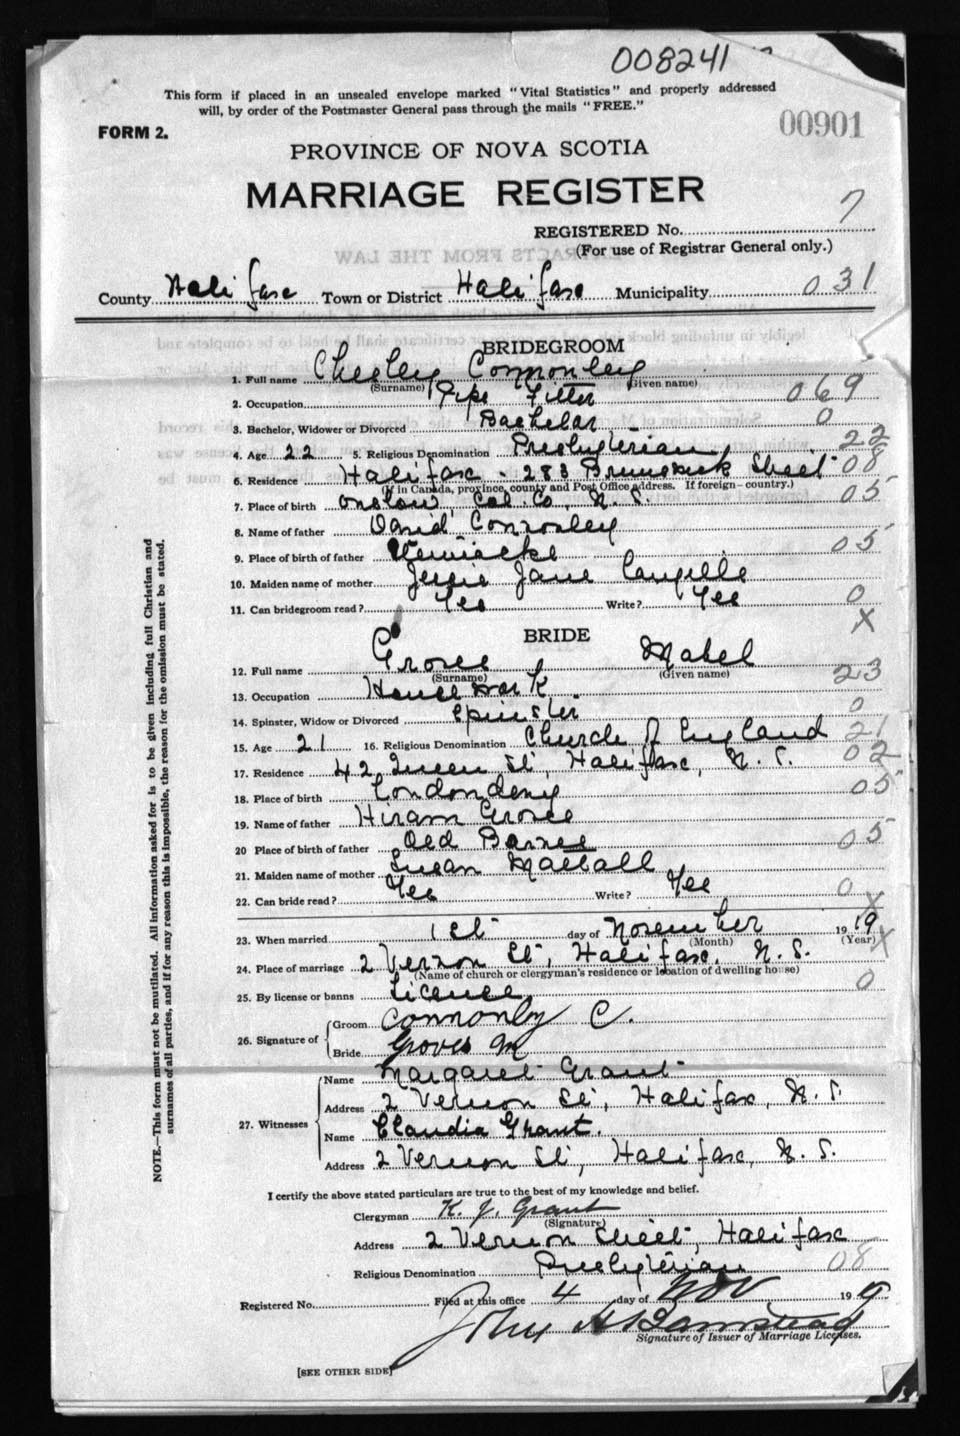 008241
This form if placed in an unsealed envelope marked "Vital Statistics" and properly addressed
will, by order of the Postmaster General pass through the mails "FREE."
FORM 2.
00901
PROVINCE OF NOVA SCOTIA
MARRIAGE REGISTER
REGISTERED No. 7
(For use of Registrar General only.)
County Halifax Town or District Halifax Municipality 031
BRIDEGROOM
1. Full name Chesley Connonley
(Surname) (Given name)
2. Occupation Pipe Fitter 069
3. Bachelor, Widower or Divorced Bachelor 0
4. Age 22 5. Religious Denomination Presbyterian 22
6. Residence Halifax - 283 Brunswick Street 08
(If in Canada, province, county and Post Office address. If foreign - country.)
7. Place of birth Onslow, Col. Co, N. S. 05
8. Name of father David Connonley
9. Place of birth of father 05
10. Maiden name of mother Jessie Jane
11. Can bridegroom read? Yes Write? Yes 0
X
BRIDE
12. Full name Groves Mabel
(Surname) (Given name)
13. Occupation Housework 23
14. Spinster, Widow or Divorced Spinster 0
15. Age 21 16. Religious Denomination Church of England 21
17. Residence 42 Queen St, Halifax, N. S. 02
18. Place of birth Londonderry 05
19. Name of father Hiram Groves
20 Place of birth of father Old Barnes 05
21. Maiden name of mother Susan
22. Can bride read? Yes Write? Yes 0
X
23. When married 1st day of November 1919
(Month) (Year) X
24. Place of marriage 2 Vernon St, Halifax, N. S.
(Name of church or clergyman's residence or location of dwelling house)
25. By license or banns Licence 0
26. Signature of Groom Connonley C.
Bride Groves M
27. Witnesses Name Margaret Grant
Address 2 Vernon St, Halifax, N. S.
Name Claudia Grant.
Address 2 Vernon St, Halifax, N. S.
I certify the above stated particulars are true to the best of my knowledge and belief.
Clergyman K. J. Grant
(Signature)
Address 2 Vernon Street, Halifax
Religious Denomination Presbyterian 08
Registered No. Filed at this office 4 day of Nov 1919
John A
Signature of Issuer of Marriage Licenses.
[SEE OTHER SIDE]
NOTE.—This form must not be mutilated. All information asked for is to be given including full Christian and
surnames of all parties, and if for any reason this is impossible, the reason for the omission must be stated.